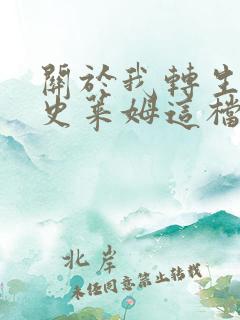 關於我轉生
史萊姆這檔
北岸
未經同意禁止轉載